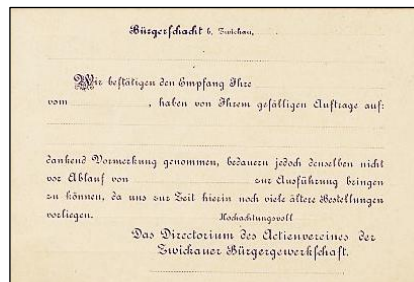 Bürgerschacht b. Zwickau,
Wir bestätigen den Empfang Ihre
vom , haben von Ihrem gefälligen Auftrage auf:
dankend Vormerkung genommen, bedauern jedoch denselben nicht
vor Ablauf von zur Ausführung bringen
zu können, da uns zur Zeit hierin noch viele ältere Bestellungen
vorliegen. Hochachtungsvoll
Das Directorium des Actienvereines der
Zwickauer Bürgergewerkschaft.